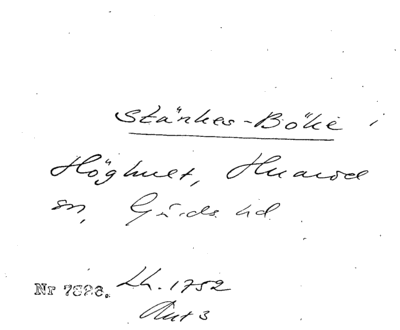 Stärkes-Böke i
Höghult, Hnarod
sn, Gärds hd.
Nr 7828. Lh. 1752
Ant 3